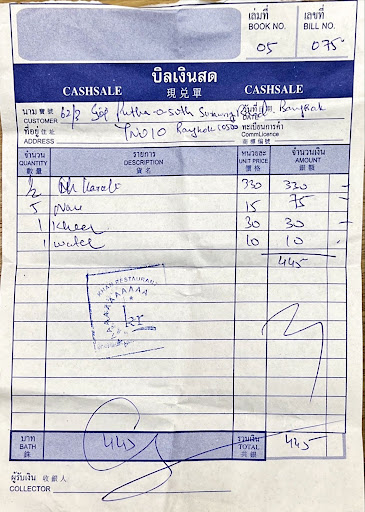 เล่มที่ เลขที่
BOOK NO. BILL NO.
05 075
บิลเงินสด
CASHSALE 現兌單 CASHSALE
นาม 寶號 วันที่ 日期
CUSTOMER DATE
62/2 Soi Bangkok
ที่อยู่ 住址 ทะเบียนการค้า
ADDRESS CommLicence
Bangkok 10500 商標編號
จำนวน รายการ หน่วยละ จำนวนเงิน
QUANTITY DESCRIPTION UNIT PRICE AMOUNT
數量 貨名 價格 銀額
1/2 Karahi 330 330 -
5 Nan 15 75 -
1 Kheer 30 30 -
1 water 10 10 -
445
KHAN RESTAURANT
kr
บาท รวมเงิน
BATH 445 TOTAL 445
銖 共銀
ผู้รับเงิน 收銀人
COLLECTOR